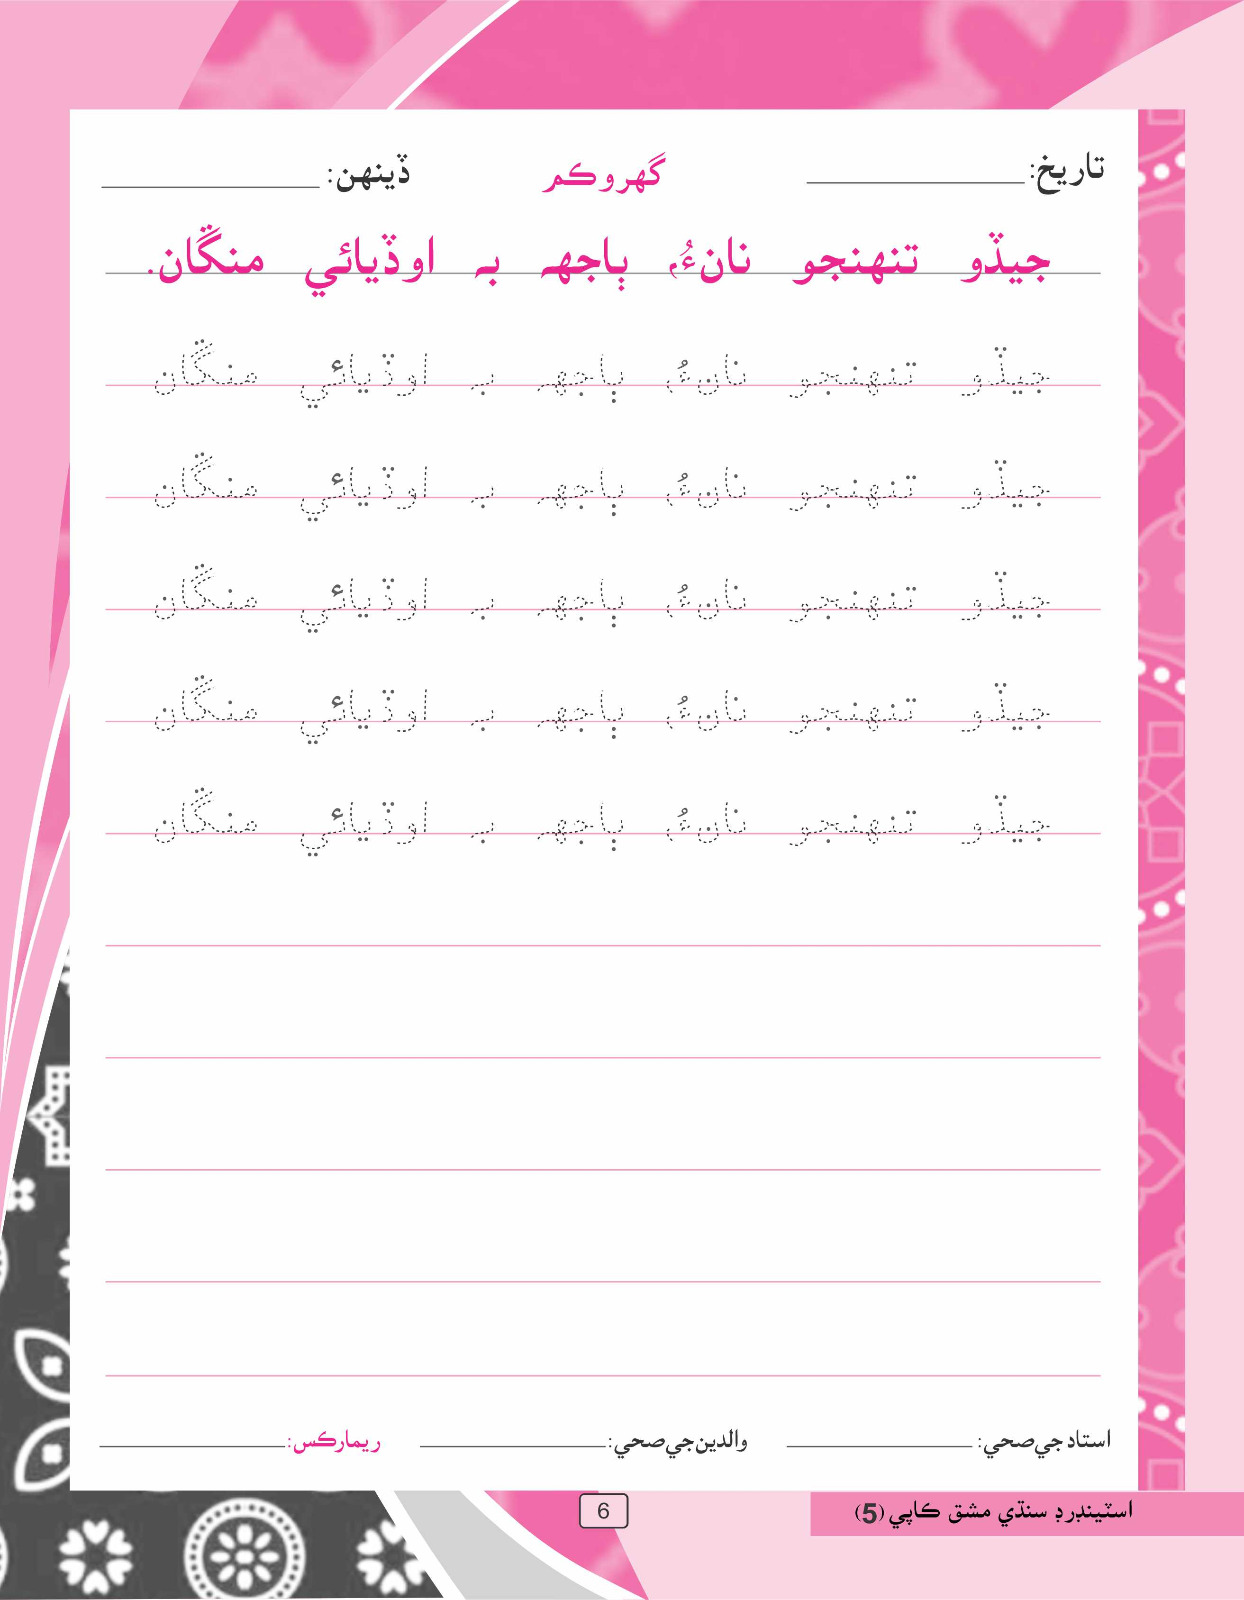 تاريخ: گھرو ڪم ڏينهن:
جيڏو تنهنجو نانءُ، ٻاجهه به اوڏيائي منگان.
جيڏو تنهنجو نانءُ، ٻاجهه به اوڏيائي منگان
جيڏو تنهنجو نانءُ، ٻاجهه به اوڏيائي منگان
جيڏو تنهنجو نانءُ، ٻاجهه به اوڏيائي منگان
جيڏو تنهنجو نانءُ، ٻاجهه به اوڏيائي منگان
جيڏو تنهنجو نانءُ، ٻاجهه به اوڏيائي منگان
استاد جي صحي: والدين جي صحي: ريمارڪس:
اسٽينڊرڊ سنڌي مشق ڪاپي (5)
6